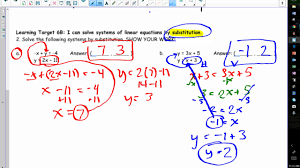 Learning Target 6B: I can solve systems of linear equations by substitution.
2. Solve the following systems by substitution. SHOW YOUR WORK.
a. -x + y = -4 Answer: ( 7, 3 )
y = 2x - 11
-x + (2x - 11) = -4
x - 11 = -4
+11 +11
x = 7
y = 2(7) - 11
14 - 11
y = 3
b. y = 3x + 5 Answer: ( -1, 2 )
y = x + 3
x + 3 = 3x + 5
-x -x
3 = 2x + 5
-2 = 2x
-1 = x
y = -1 + 3
y = 2